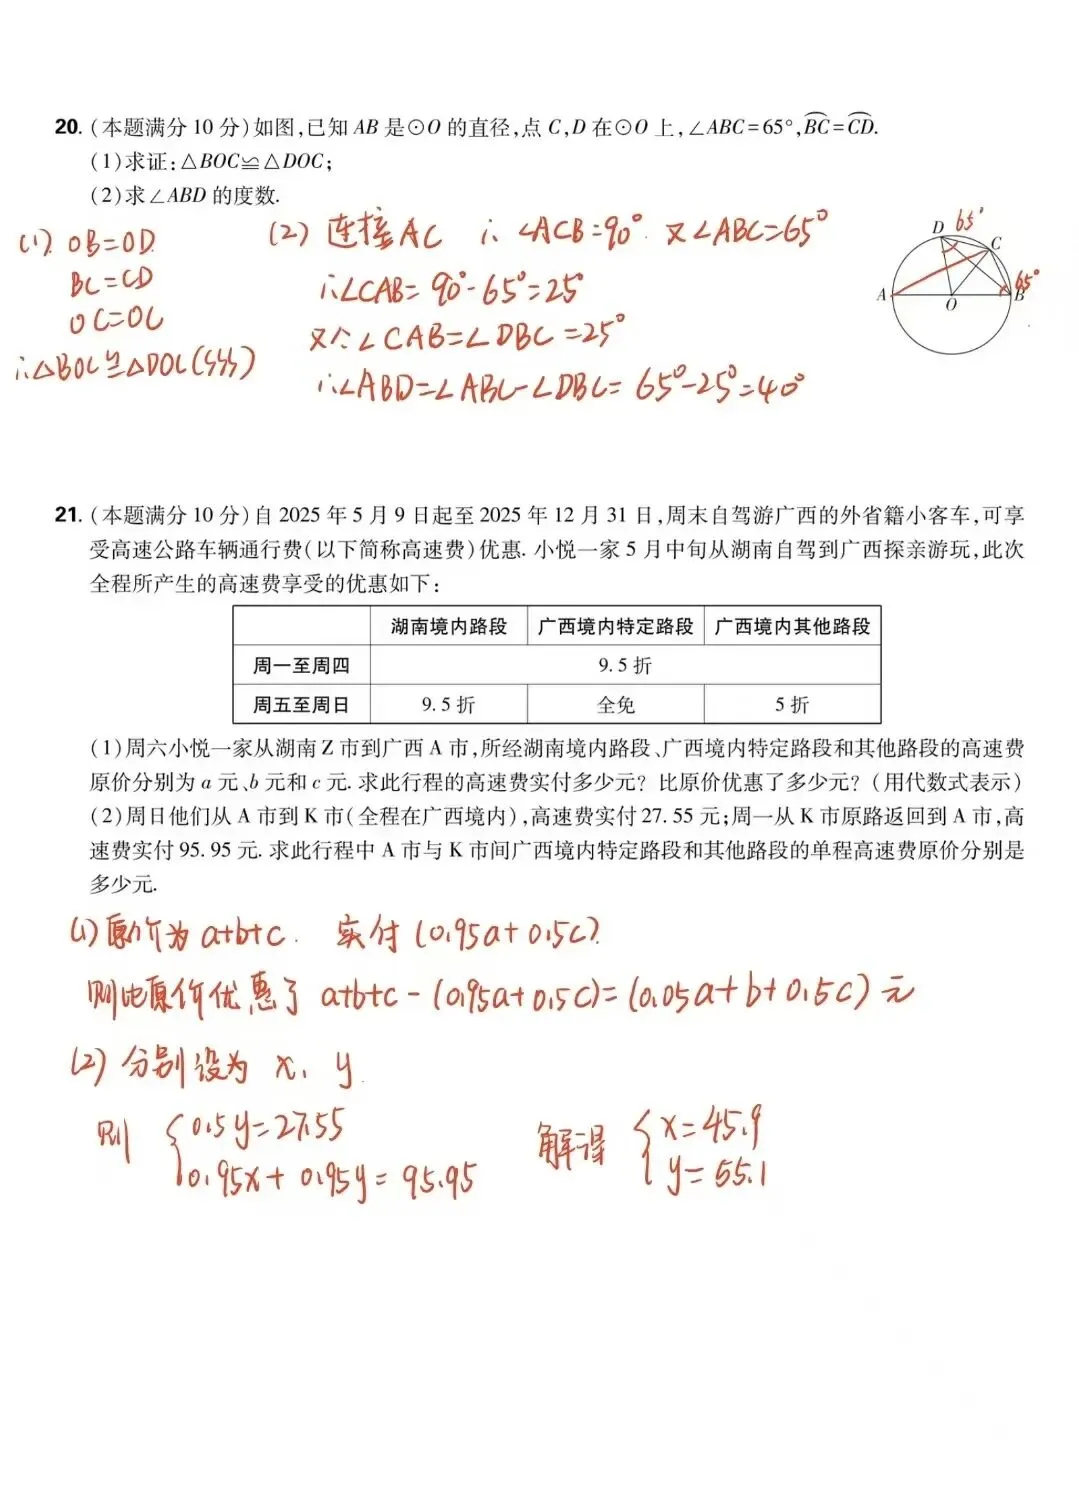 20. (本题满分10分)如图,已知AB是⊙O的直径,点C,D在⊙O上,∠ABC=65°,B͡C=C͡D.
(1)求证:△BOC≌△DOC;
(2)求∠ABD的度数.
(1). OB=OD.
BC=CD
OC=OC
∴△BOC≌△DOC(SSS)
(2) 连接AC ∴∠ACB=90°. 又∠ABC=65°
∴∠CAB=90°-65°=25°
又∵∠CAB=∠DBC=25°
∴∠ABD=∠ABC-∠DBC=65°-25°=40°
D 65°
C
A O B 65°
21. (本题满分10分)自2025年5月9日起至2025年12月31日,周末自驾游广西的外省籍小客车,可享
受高速公路车辆通行费(以下简称高速费)优惠. 小悦一家5月中旬从湖南自驾到广西探亲游玩,此次
全程所产生的高速费享受的优惠如下:
湖南境内路段 广西境内特定路段 广西境内其他路段
周一至周四 9.5折
周五至周日 9.5折 全免 5折
(1)周六小悦一家从湖南Z市到广西A市,所经湖南境内路段、广西境内特定路段和其他路段的高速费
原价分别为a元、b元和c元. 求此行程的高速费实付多少元? 比原价优惠了多少元? (用代数式表示)
(2)周日他们从A市到K市(全程在广西境内),高速费实付27.55元;周一从K市原路返回到A市,高
速费实付95.95元. 求此行程中A市与K市间广西境内特定路段和其他路段的单程高速费原价分别是
多少元.
(1) 原价为a+b+c. 实付(0.95a+0.5c).
则比原价优惠了 a+b+c-(0.95a+0.5c)=(0.05a+b+0.5c)元
(2) 分别设为 x, y.
则 {0.5y=27.55 解得 {x=45.9
0.95x+0.95y=95.95 y=55.1